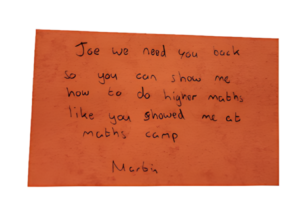 Joe we need you back
so you can show me
how to do higher maths
like you showed me at
maths camp
Martin